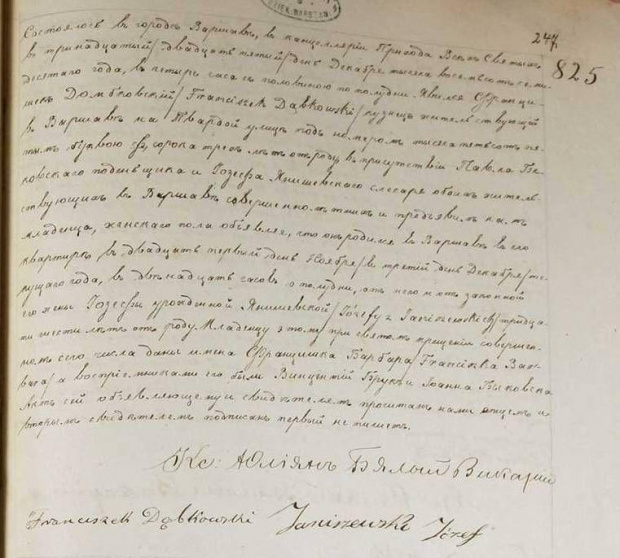 247
825
Состоялось въ городѣ Варшавѣ, въ канцелляріи Прихода Всѣхъ Святыхъ
въ тринадцатый /двадцать пятый/ день Декабря тысяча восемьсотъ се-
десятаго года, въ четыре часа съ половиною по полудни. Явился Франци-
шекъ Домбковскій /Franciszek Dąbkowski/ кузнецъ жительствующій
въ Варшавѣ на Твардой улицѣ подъ номеромъ тысяча
буквою сорока трехъ лѣтъ отъ роду, въ присутствіи Павла
и Іозефа Янишевскаго слесаря обоихъ житель-
ствующихъ въ Варшавѣ совершеннолѣтнихъ и предъявилъ намъ
младенца, женскаго пола объявляя, что онъ родился въ Варшавѣ въ его
квартирѣ, въ двадцать первый день Ноября /въ третій день Декабря/ те-
кущаго года, въ двѣнадцать часовъ о полудни, отъ него и отъ законной
его жены Іозефы урожденной Янишевской /Józefy z Janiszewskich/ тридца-
ти шести лѣтъ отъ роду. Младенцу этому при святомъ крещеніи совершен-
номъ сего числа даны имена Францишка Барбара /Franciszka Bar-
bara/ а воспріемниками его были Винцентій и Іоанна Быковска
Актъ сей объявляющему и свидѣтелямъ прочитанъ нами и
вторымъ свидѣтелемъ подписанъ первый не пишетъ.
Кс: Юліянъ Бялый Викарій
Franciszek Dąbkowski Janiszewski Józef